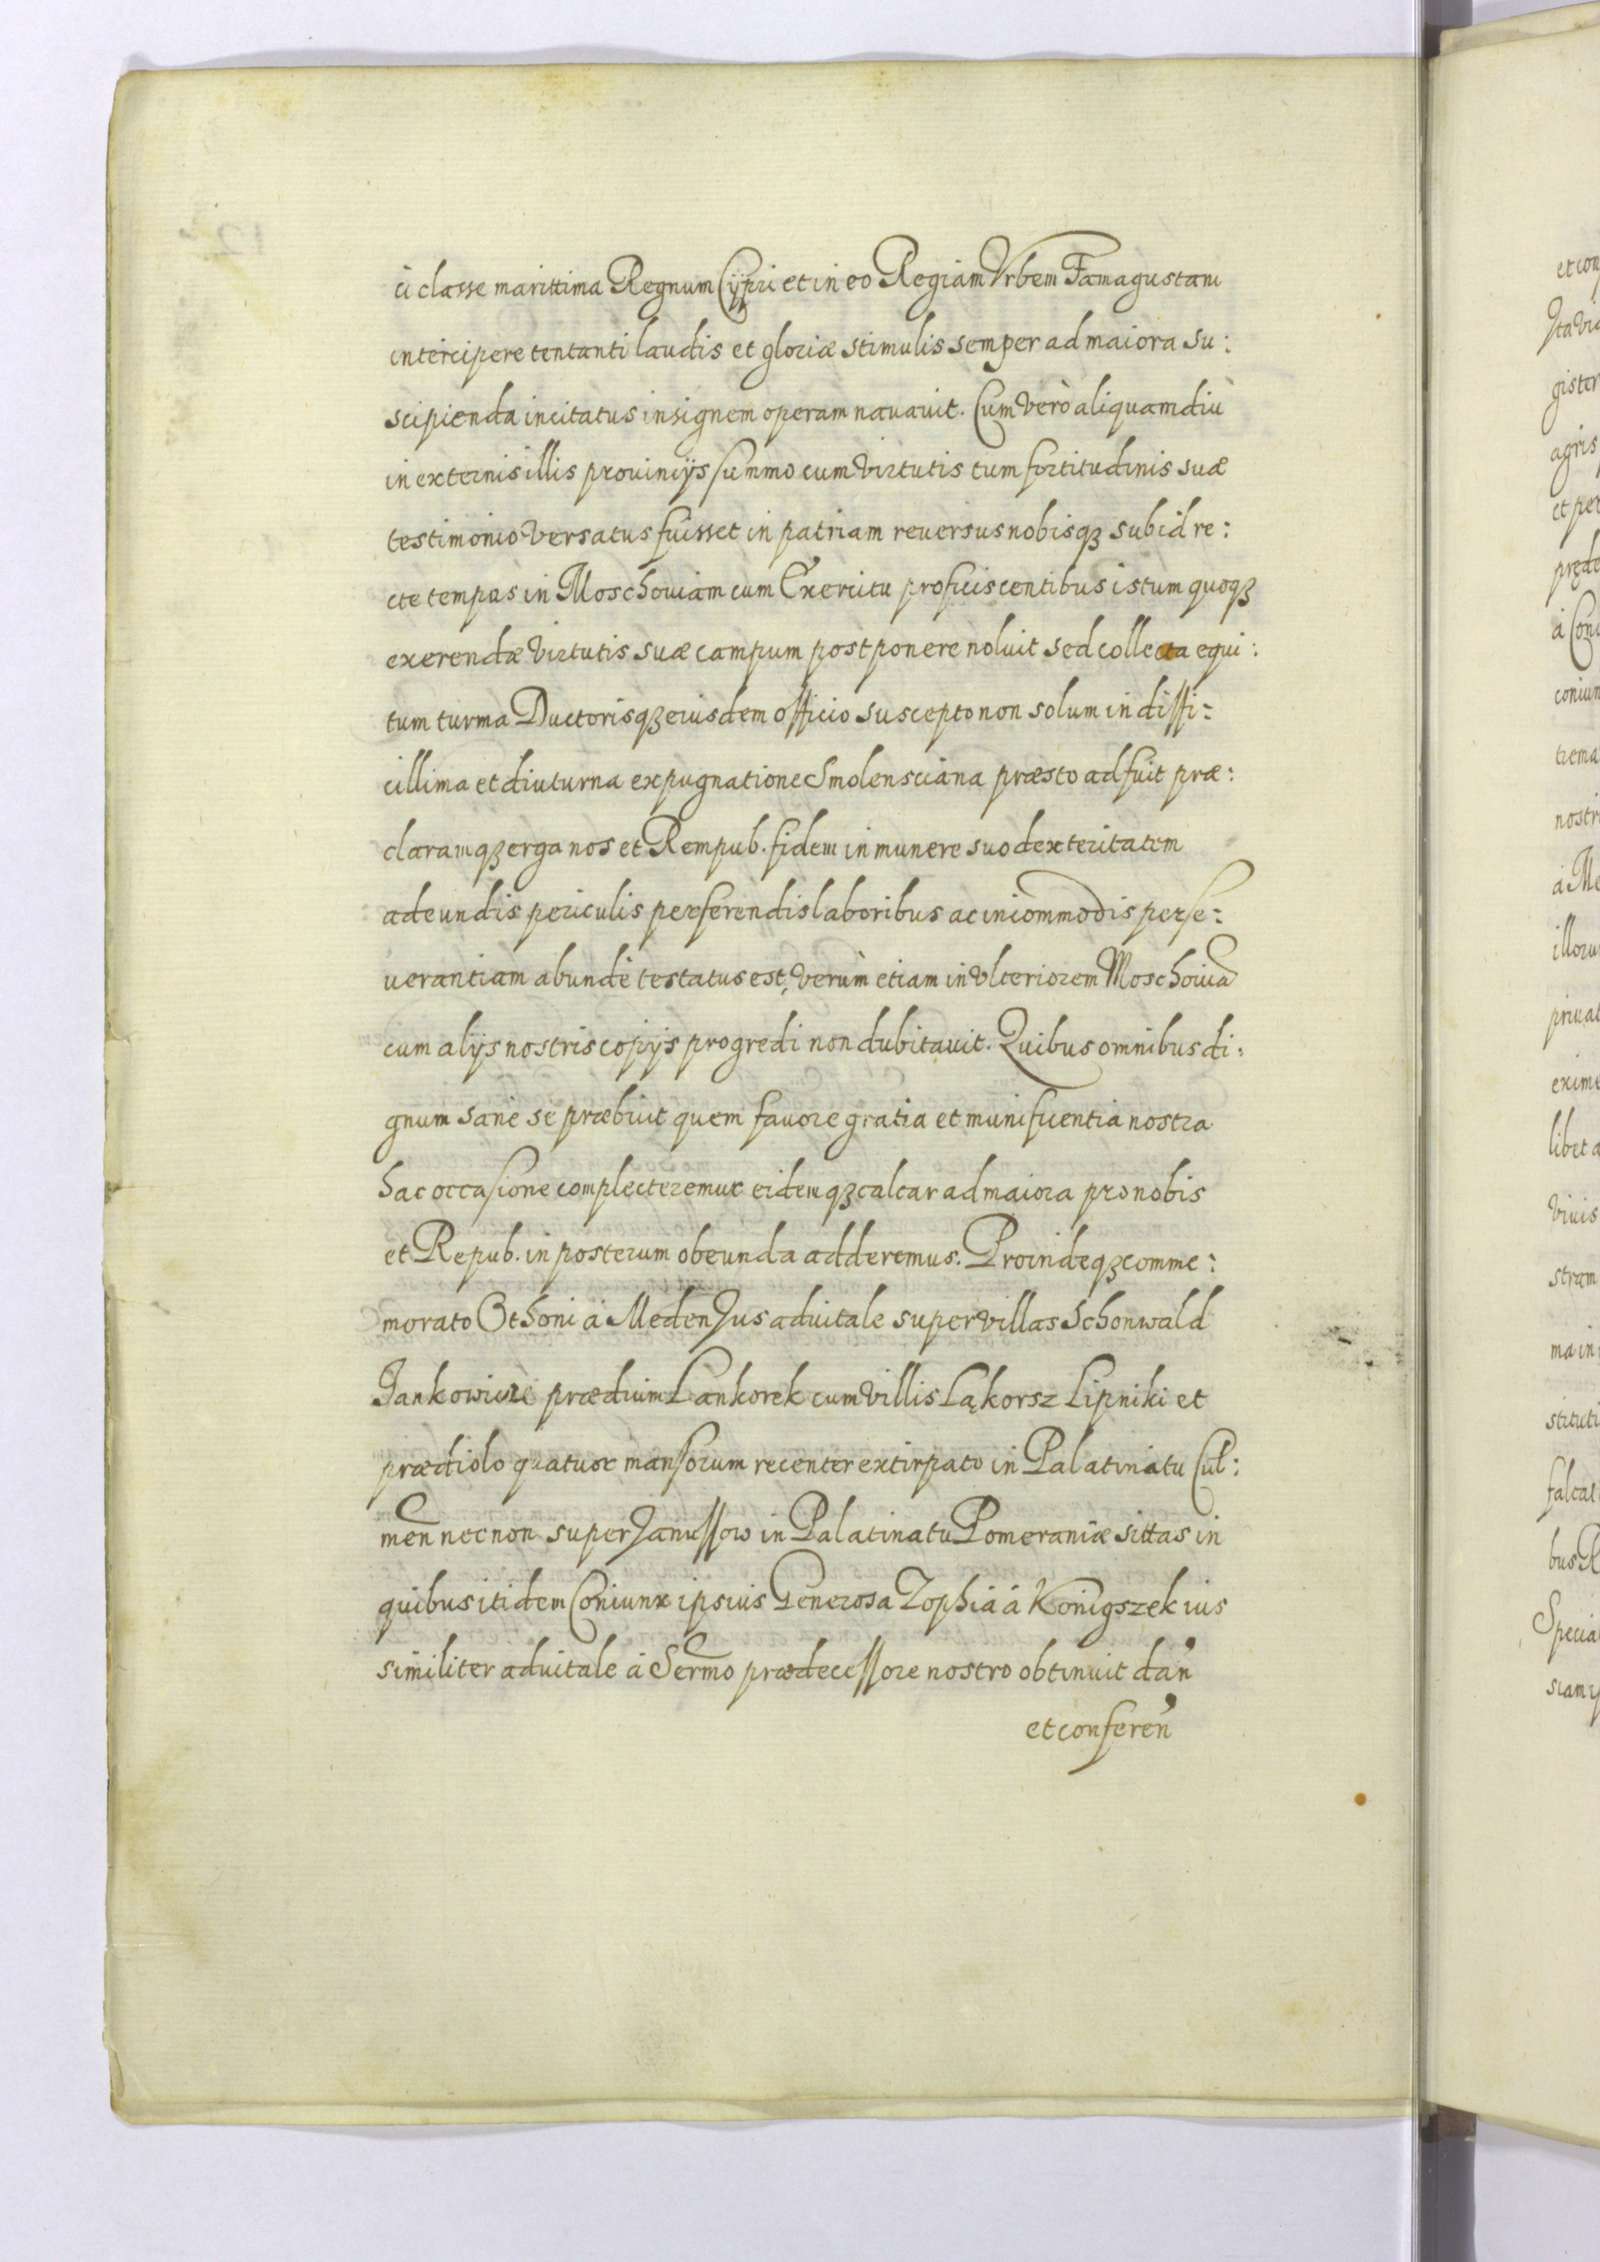 ci classe marittima Regnum Cÿpri et in eo Regiam Vrbem Famagustam
intercipere tentanti laudis et gloriæ stimulis semper ad maiora su:
scipienda incitatus insignem operam nauauit. Cum verò aliquamdiù
in externis illis prouincijs summo cum virtutis tum fortitudinis suæ
testimonio versatus fuisset in patriam reuersus nobisqꝫ sub id re:
cte tempus in Moschouiam cum Exercitu proficiscentibus istum quoqꝫ
exerendæ virtutis suæ campum postponere noluit sed collecta equi:
tum turma Ductorisqꝫ eiusdem officio suscepto non solum in diffi:
cillima et diuturna expugnatione Smolensciana præsto adfuit præ:
claramqꝫ erga nos et Rempub. fidem in munere suo dexteritatem
adeundis periculis perferendis laboribus ac incommodis perse:
uerantiam abundè testatus est, verùm etiam in vlteriorem Moschouiã
cum alijs nostris copijs progredi non dubitauit. Quibus omnibus di:
gnum sanè se præbuit quem fauore gratia et munificentia nostra
hac occasione complecteremur eidemqꝫ calcar ad maiora pro nobis
et Repub. in posterum obeunda adderemus. Proindeqꝫ comme:
morato Othoni à Meden Jus aduitale super villas Schonwald
Jankowice prædium Lankorek cum villis Ląkorsz Lipniki et
prædiolo quatuor mansorum recenter extirpato in Palatinatu Cul:
men̄ necnon super Janussow in Palatinatu Pomeraniæ sittas in
quibus itidem Coniunx ipsius Generosa Zophia á Konigszek ius
similiter aduitale à Serm̄o prædecessore nostro obtinuit dan̓
et conferen̓